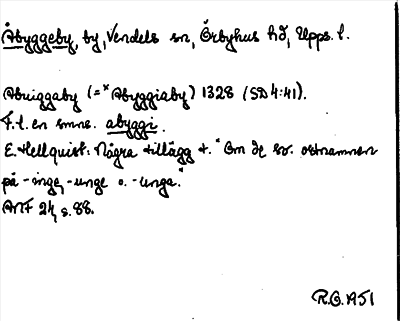 Åbyggeby, by, Vendels sn, Örbyhus hd, Upps. l.
Abiiggaby (=*Abyggiaby) 1328 (SD 4:41).
F. l. en smns. abyggi.
E. Hellquist: Några tillägg t. "Om de sv. ortnamnen
på -inge, -unge o. -unga."
ANF 24, s. 88.
R.G. 1951